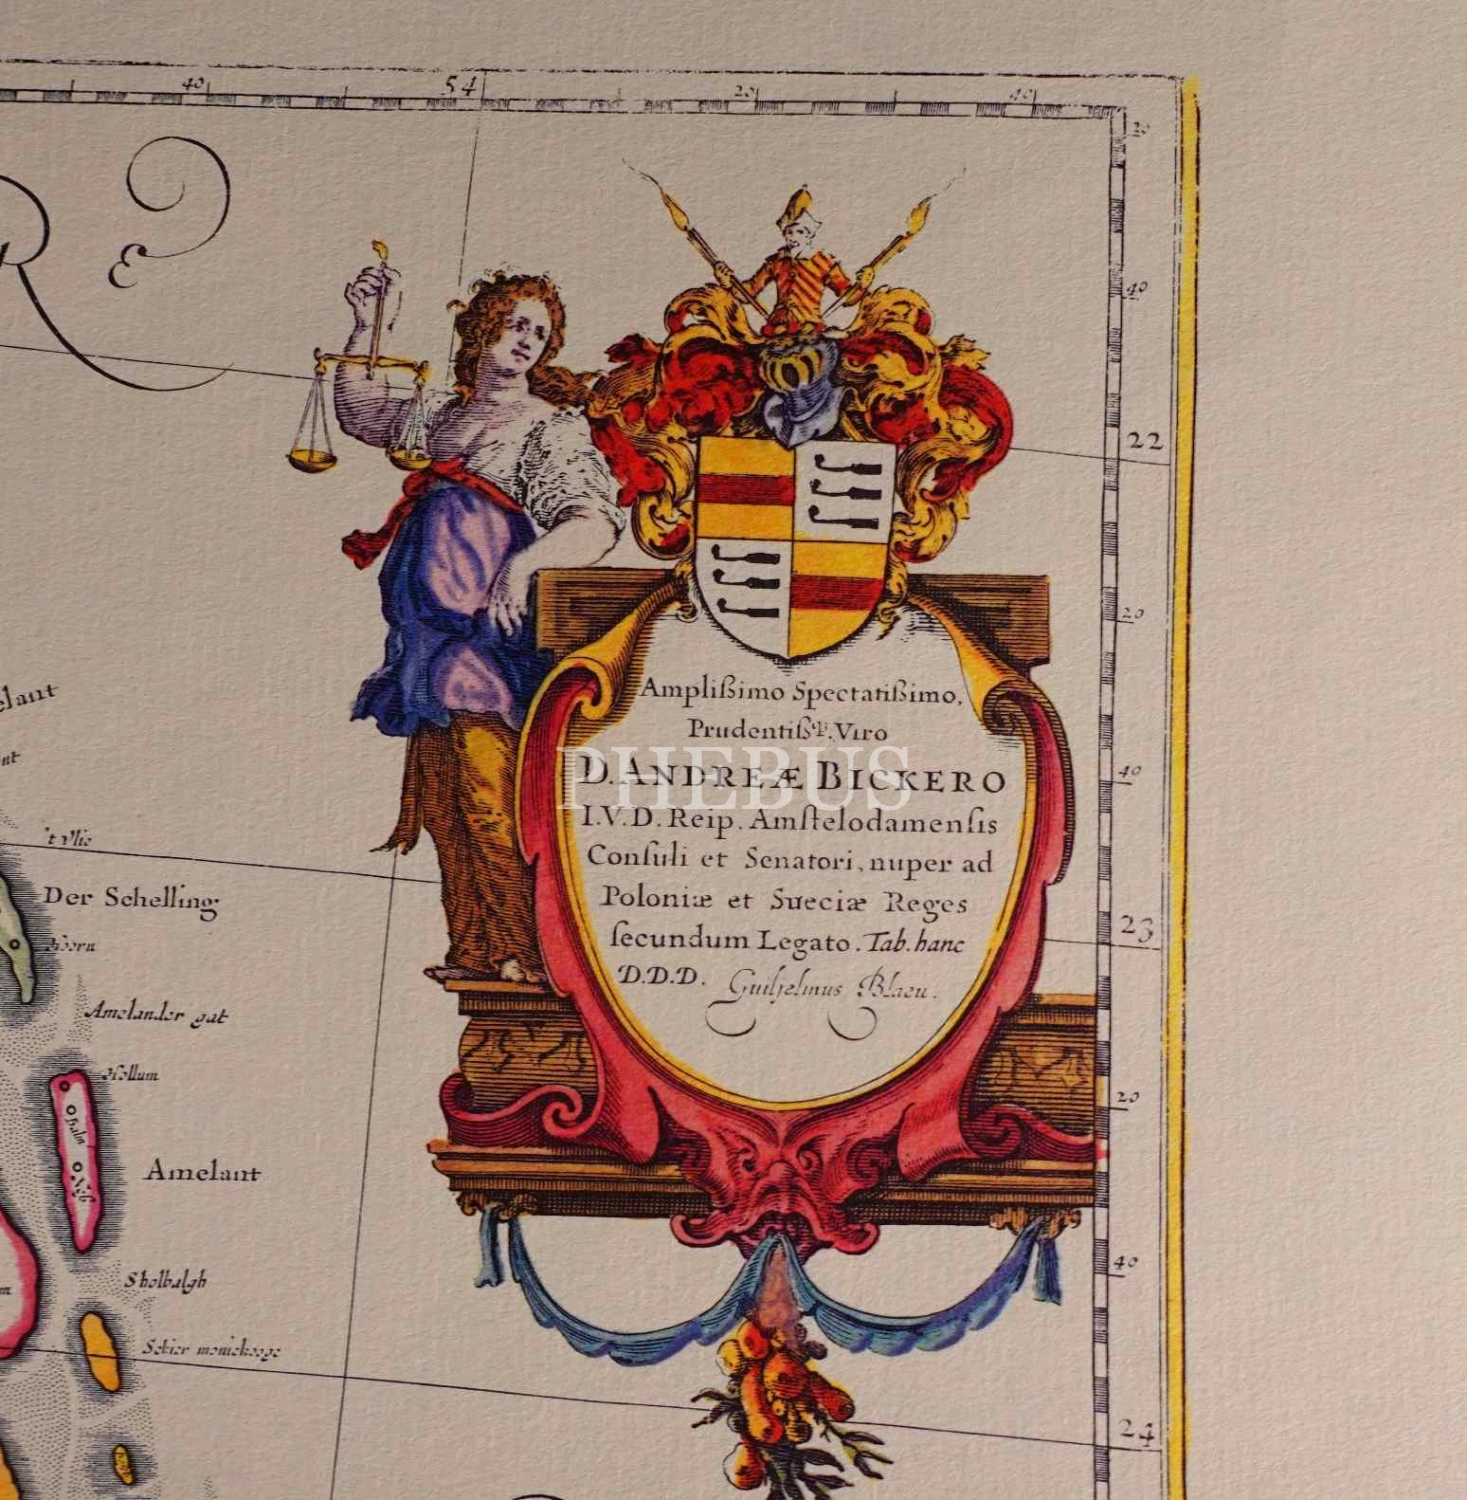 40
54
20
40
20
R Æ
40
22
20
Amplißimo Spectatißimo,
Prudentißq. Viro
D. ANDREÆ BICKERO
PHEBUS
I.V.D. Reip. Amſtelodamenſis
Conſuli et Senatori, nuper ad
Poloniæ et Sueciæ Reges
ſecundum Legato. Tab. hanc
D.D.D. Guiljelmus Blaeu.
40
't Vlie
Der Schelling
Hoorn
23
Amelander gat
Hollum
20
Balm
Neß
Amelant
Sholbalgh
40
Schier monickooge
24